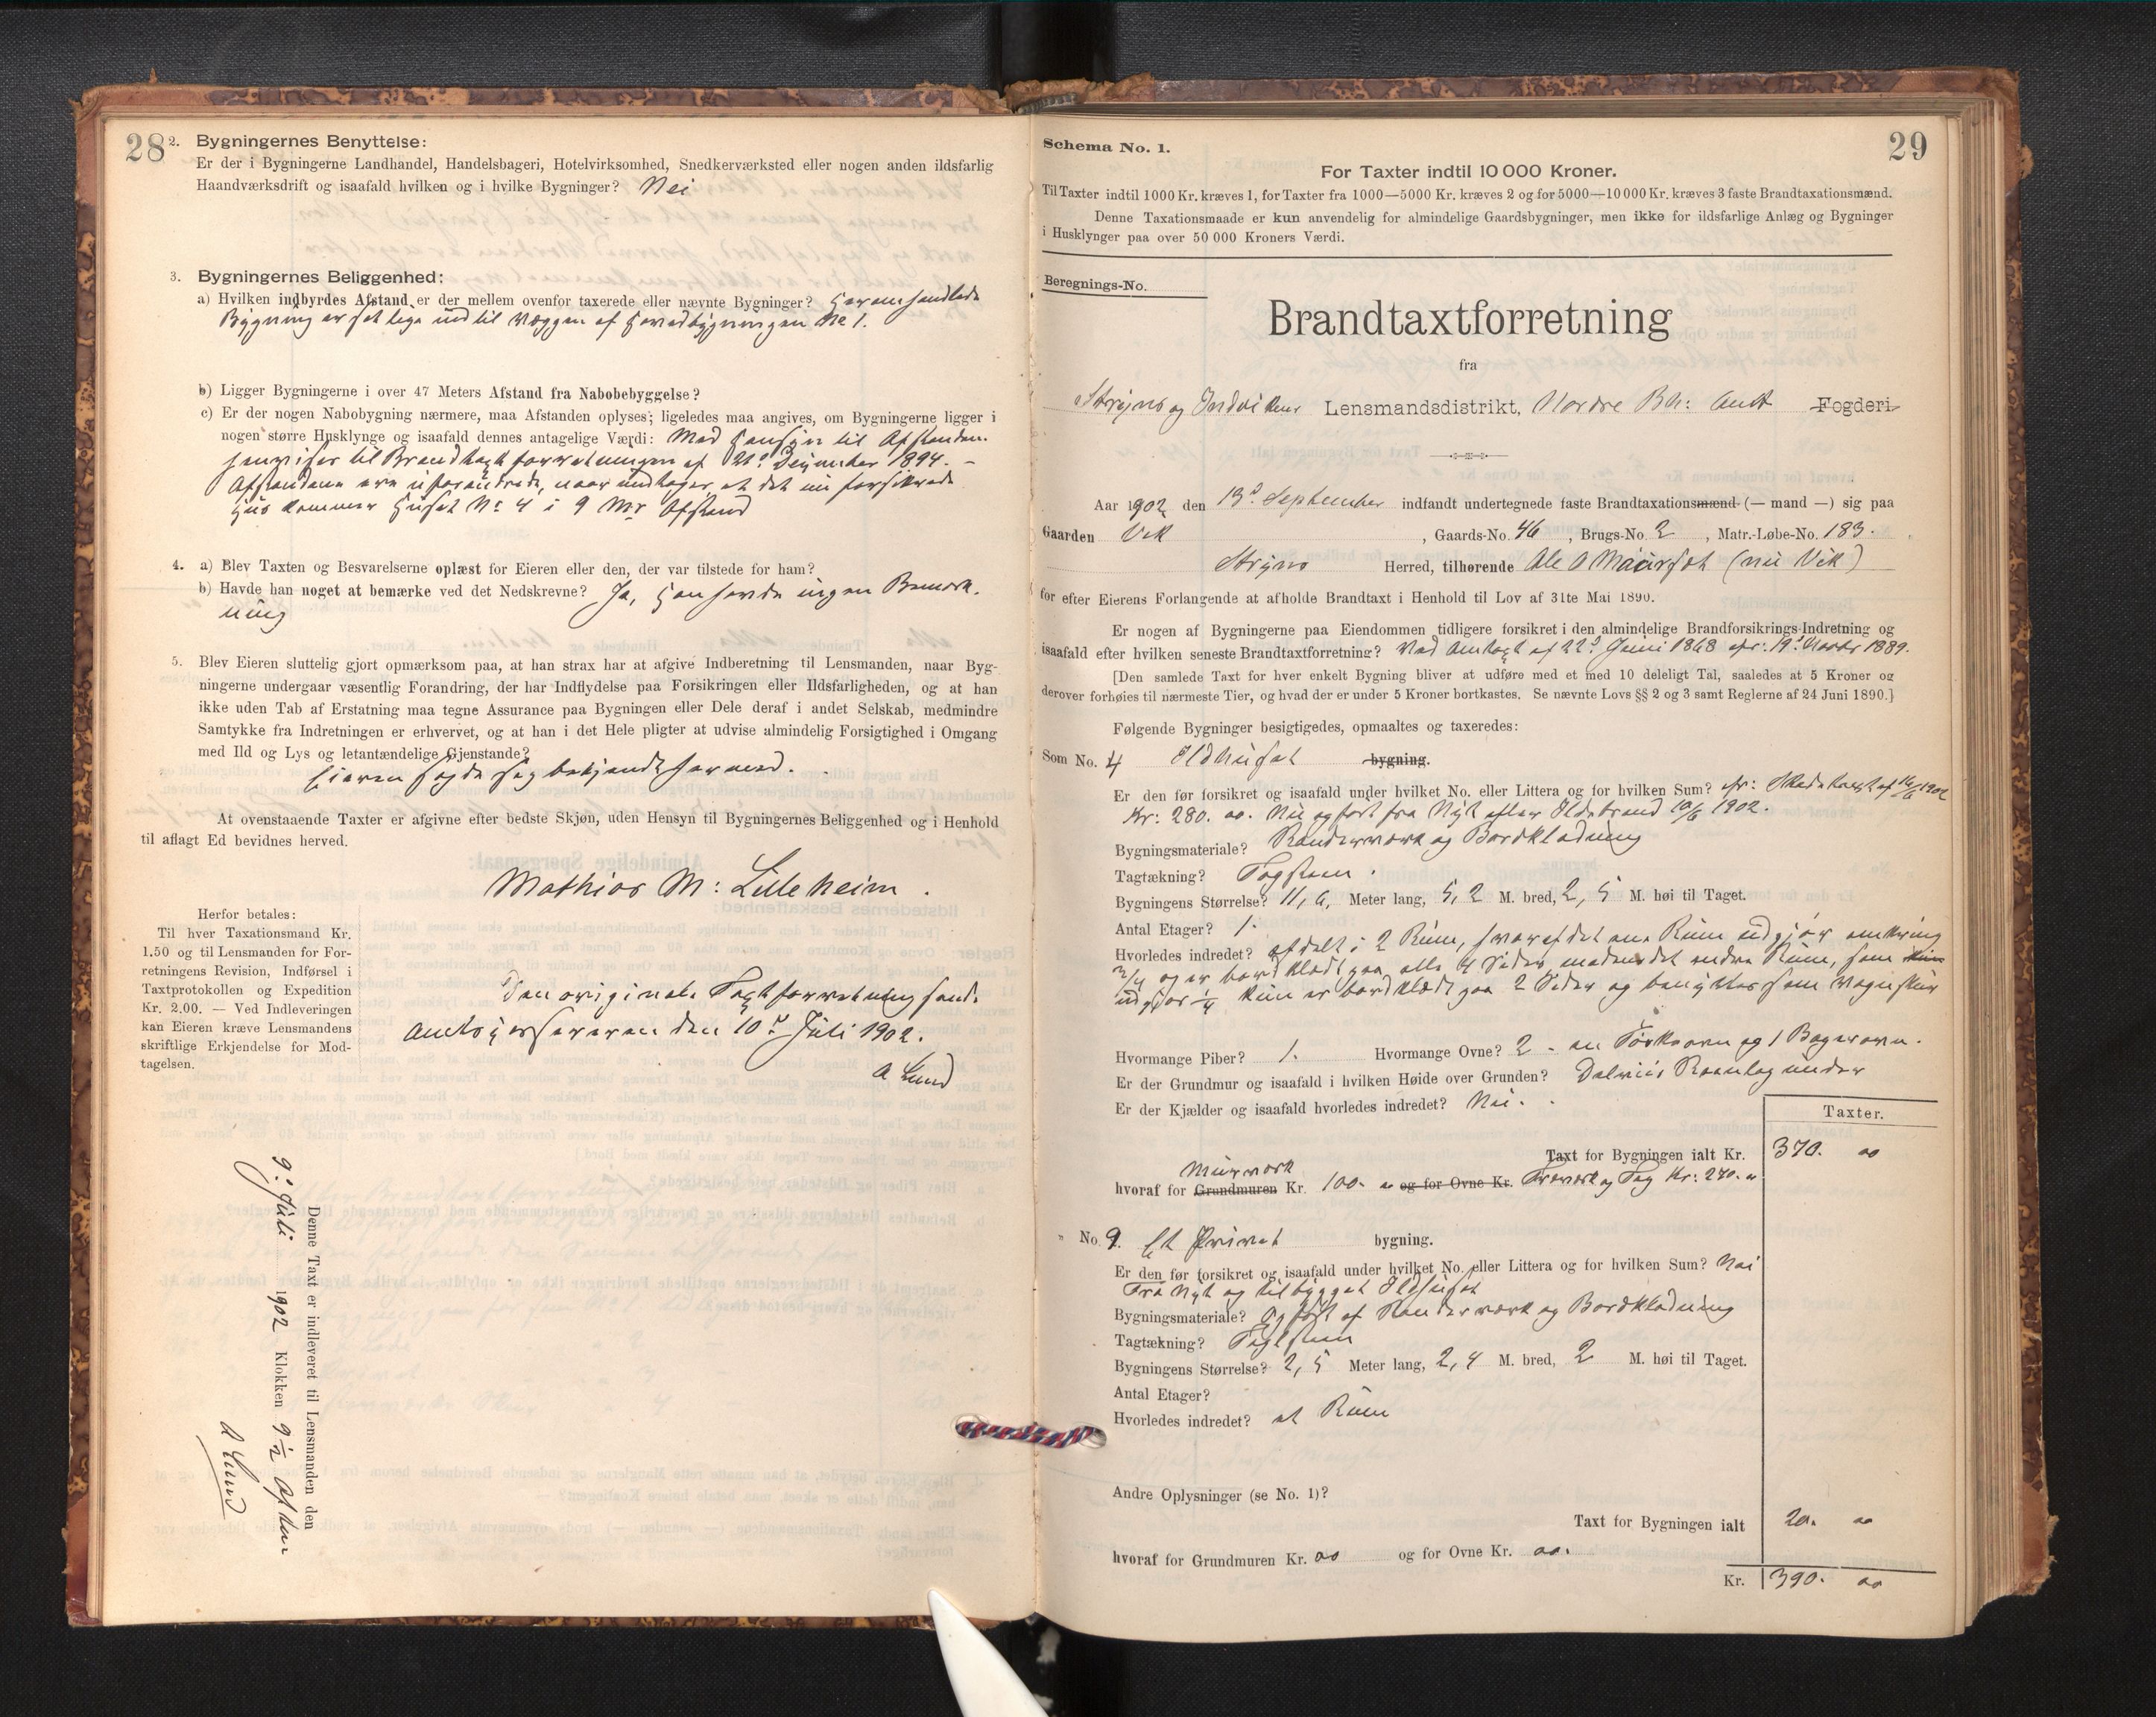 28
2. Bygningernes Benyttelse:
Er der i Bygningerne Landhandel, Handelsbageri, Hotelvirksomhed, Snedkerværksted eller nogen anden ildsfarlig
Haandværksdrift og isaafald hvilken og i hvilke Bygninger? Nei
3. Bygningernes Beliggenhed:
a) Hvilken indbyrdes Afstand er der mellem ovenfor taxerede eller nævnte Bygninger? Heromhandlede
Bygning er sat lige ind til Væggen af Hovedbygningen No 1.
b) Ligger Bygningerne i over 47 Meters Afstand fra Nabobebyggelse?
c) Er der nogen Nabobygning nærmere, maa Afstanden oplyses; ligeledes maa angives, om Bygningerne ligger i
nogen større Husklynge og isaafald dennes antagelige Værdi: Med Hensyn til Afstanden
henvises til Brandtaxtforretningen af 21de Desember 1894. –
Afstandene ere uforandrede, naar undtages at det nu forsikrede
Hus kommer Huset No 4 i 9 Mr Afstand
4. a) Blev Taxten og Besvarelserne oplæst for Eieren eller den, der var tilstede for ham?
b) Havde han noget at bemærke ved det Nedskrevne? Ja, Han havde ingen Bemærk-
ning
5. Blev Eieren sluttelig gjort opmærksom paa, at han strax har at afgive Indberetning til Lensmanden, naar Byg-
ningerne undergaar væsentlig Forandring, der har Indflydelse paa Forsikringen eller Ildsfarligheden, og at han
ikke uden Tab af Erstatning maa tegne Assurance paa Bygningen eller Dele deraf i andet Selskab, medmindre
Samtykke fra Indretningen er erhvervet, og at han i det Hele pligter at udvise almindelig Forsigtighed i Omgang
med Ild og Lys og letantændelige Gjenstande?
Eieren sagde sig bekjendt hermed.
At ovenstaaende Taxter er afgivne efter bedste Skjøn, uden Hensyn til Bygningernes Beliggenhed og i Henhold
til aflagt Ed bevidnes herved.
Mathias M: Lilleheim.
Herfor betales:
Til hver Taxationsmand Kr.
1.50 og til Lensmanden for For-
retningens Revision, Indførsel i
Taxtprotokollen og Expedition
Kr. 2.00. — Ved Indleveringen
kan Eieren kræve Lensmandens
skriftlige Erkjendelse for Mod-
tagelsen.
Den originale Taxtforretning sendt
Amtets den 10de Juli 1902.
A Lund
Denne Taxt er indleveret til Lensmanden den
9de Juli 1902 Klokken 9 1/2 Aften
A Lund
29
Schema No. 1.
For Taxter indtil 10 000 Kroner.
Til Taxter indtil 1000 Kr. kræves 1, for Taxter fra 1000—5000 Kr. kræves 2 og for 5000—10 000 Kr. kræves 3 faste Brandtaxationsmænd.
Denne Taxationsmaade er kun anvendelig for almindelige Gaardsbygninger, men ikke for ildsfarlige Anlæg og Bygninger
i Husklynger paa over 50 000 Kroners Værdi.
Beregnings-No.
Brandtaxtforretning
fra
Stryns og Indvikens Lensmandsdistrikt, Nordre Bh: Amt Fogderi
Aar 1902 den 13de September indfandt undertegnede faste Brandtaxationsmænd (— mand —) sig paa
Gaarden Vik, Gaards-No. 46, Brugs-No. 2, Matr.-Løbe-No. 183.
Stryns Herred, tilhørende Ole O Maurset (nu Vik)
for efter Eierens Forlangende at afholde Brandtaxt i Henhold til Lov af 31te Mai 1890.
Er nogen af Bygningerne paa Eiendommen tidligere forsikret i den almindelige Brandforsikrings-Indretning og
isaafald efter hvilken seneste Brandtaxtforretning? Ved Omtaxt af 22de Juni 1868 cfr: 19de Novbr 1889.
[Den samlede Taxt for hver enkelt Bygning bliver at udføre med et med 10 deleligt Tal, saaledes at 5 Kroner og
derover forhøies til nærmeste Tier, og hvad der er under 5 Kroner bortkastes. Se nævnte Lovs §§ 2 og 3 samt Reglerne af 24 Juni 1890.]
Følgende Bygninger besigtigedes, opmaaltes og taxeredes:
Som No. 4 Ildhuset bygning.
Er den før forsikret og isaafald under hvilket No. eller Litera og for hvilken Sum? cfr: Skadetaxt af 16/6 1902
Kr: 280. 00. Nu opført fra Nyt efter Ildsbrand 10/6 1902.
Bygningsmateriale? Standerværk og Bordklædning
Tagtækning? Tagsten.
Bygningens Størrelse? 11,6, Meter lang, 5,2 M. bred, 2,5 M. høi til Taget.
Antal Etager? 1.
Hvorledes indredet? afdelt i 2 Rum, hvoraf det ene Rum udgjør omkring
3/4 og er bordklædt paa alle 4 Sider medens det andre Rum, som
udgjør 1/4 kun er bordklædt paa 2 Sider og benyttes som Vognskur
Hvormange Piber? 1. Hvormange Ovne? 2 - en Tørkeovn og 1 Bagerovn.
Er der Grundmur og isaafald i hvilken Høide over Grunden? Delvis Stenlag under
Er der Kjælder og isaafald hvorledes indredet? Nei.
Taxter.
Taxt for Bygningen ialt Kr. 370. 00
hvoraf for Grundmuren Murværk Kr. 100. 00 og for Ovne Kr. Træværk og Tag Kr: 270. 00
" No. 9. Et Privet bygning.
Er den før forsikret og isaafald under hvilket No. eller Littera og for hvilken Sum? Nei
Fra Nyt og tilbygget Ildhuset
Bygningsmateriale? Opført af Standerværk og Bordklædning
Tagtækning? Taglsten
Bygningens Størrelse? 2,5 Meter lang, 2,4 M. bred, 2 M. høi til Taget.
Antal Etager?
Hvorledes indredet? et Rum
Andre Oplysninger (se No. 1)?
Taxt for Bygningen ialt 20. 00
hvoraf for Grundmuren Kr. 00 og for Ovne Kr. 00.
Kr. 390. 00